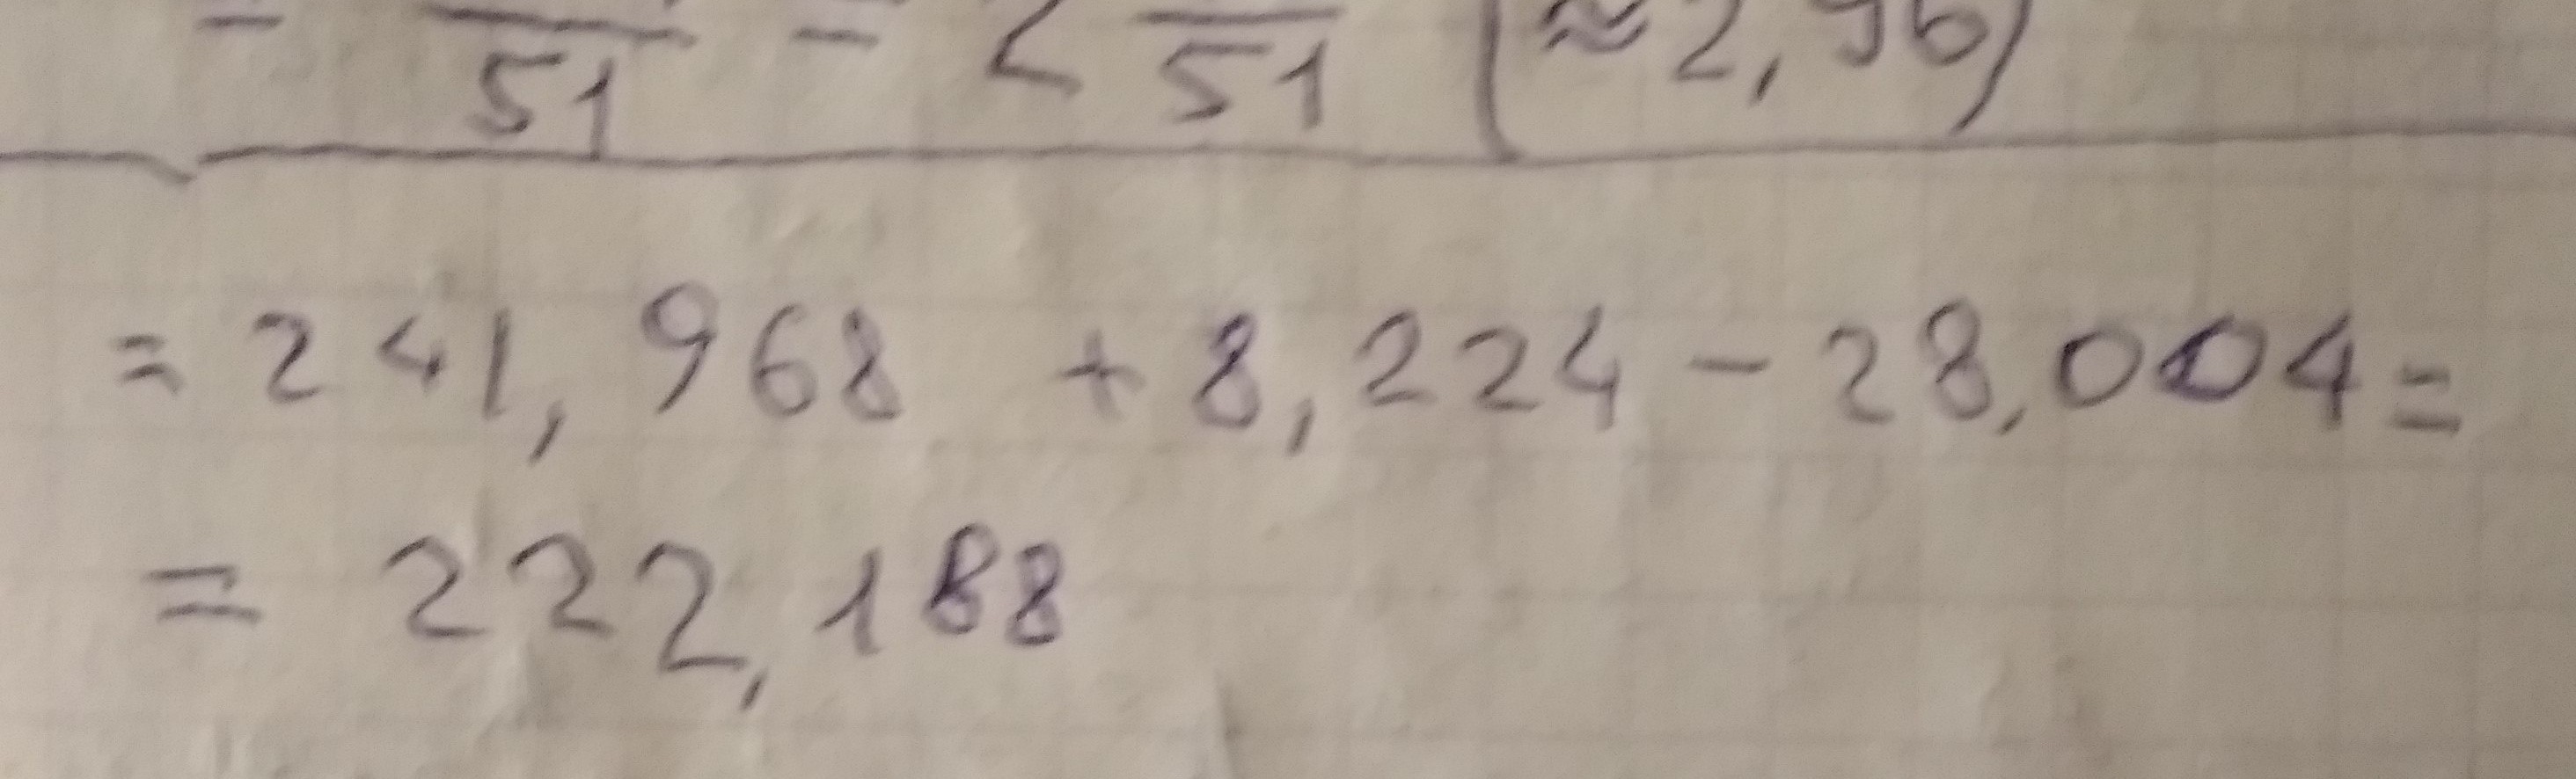 = 51 = 2 51 (≈2,96)
= 241,968 + 8,224 - 28,004 =
= 222,188